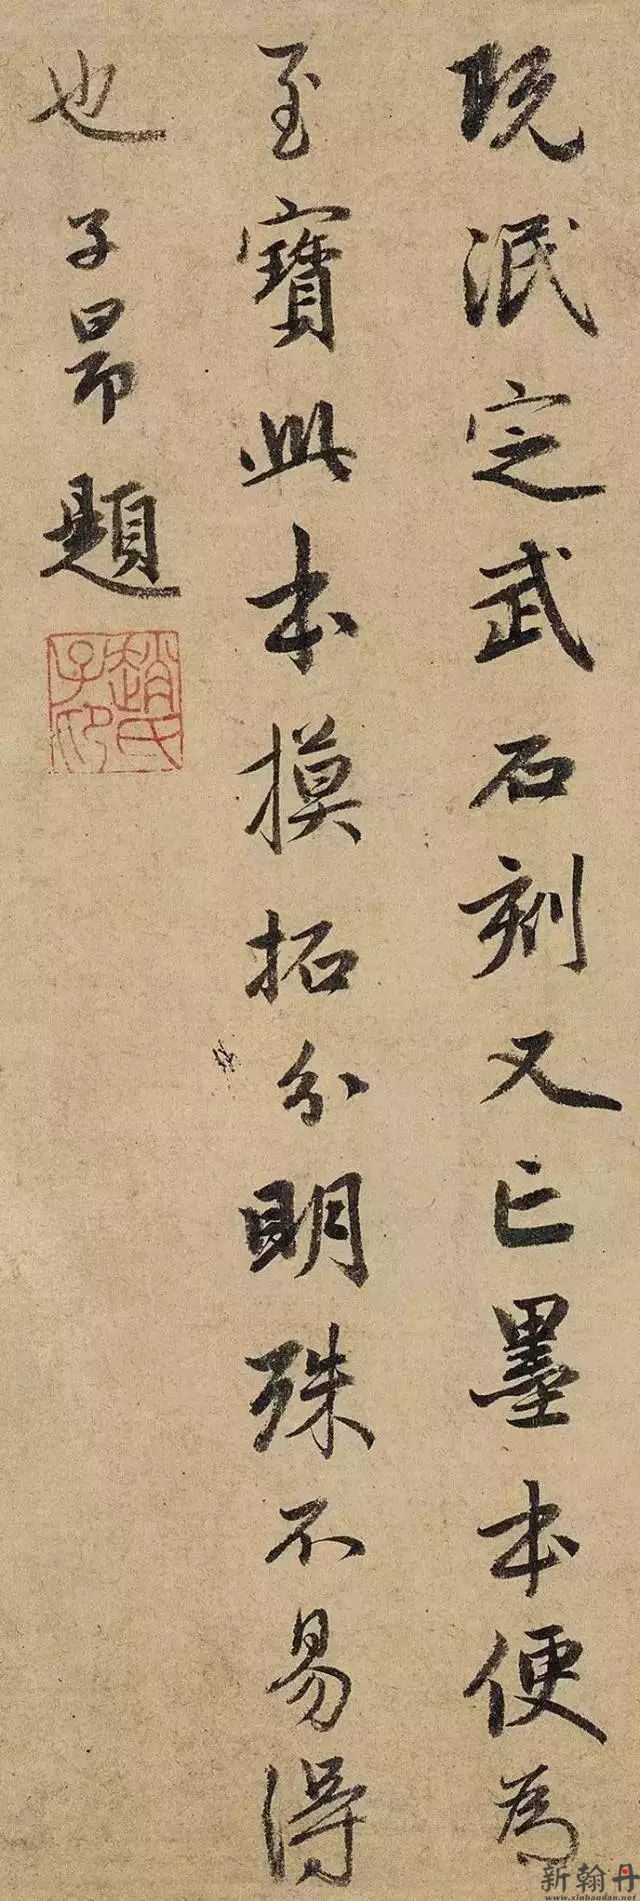 既泯定武石刻又亡墨本便為
至寶此本摸拓分明殊不易得
也子昂題
趙氏子印
新翰丹
www.xinhandan.net